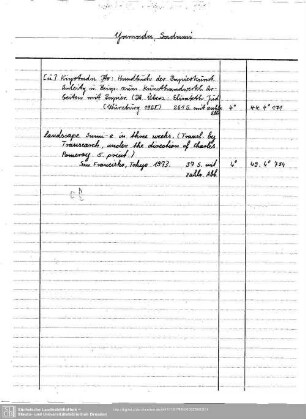 Yamada, Sadami
[u.] Kiyotada Ito: Handbuch der Papierkunst.
Anleitg u. Anreg. zum kunsthandwerkl. Ar-
beiten mit Papier. (Dt. Übers.: Elisabeth
(Würzburg 1985) 269 S. mit zahlr. Abb. 4° 44. 4° 179
Landscape Sumi-e in three weeks. (Transl. by
Transearch, under the direction of Charles
Pomeroy. 5. print.)
San Francisko, Tokyo 1973. 59 S. mit
zahlr. Abb. 4° 49. 4° 754
Sächsische Landesbibliothek -
Staats- und Universitätsbibliothek Dresden